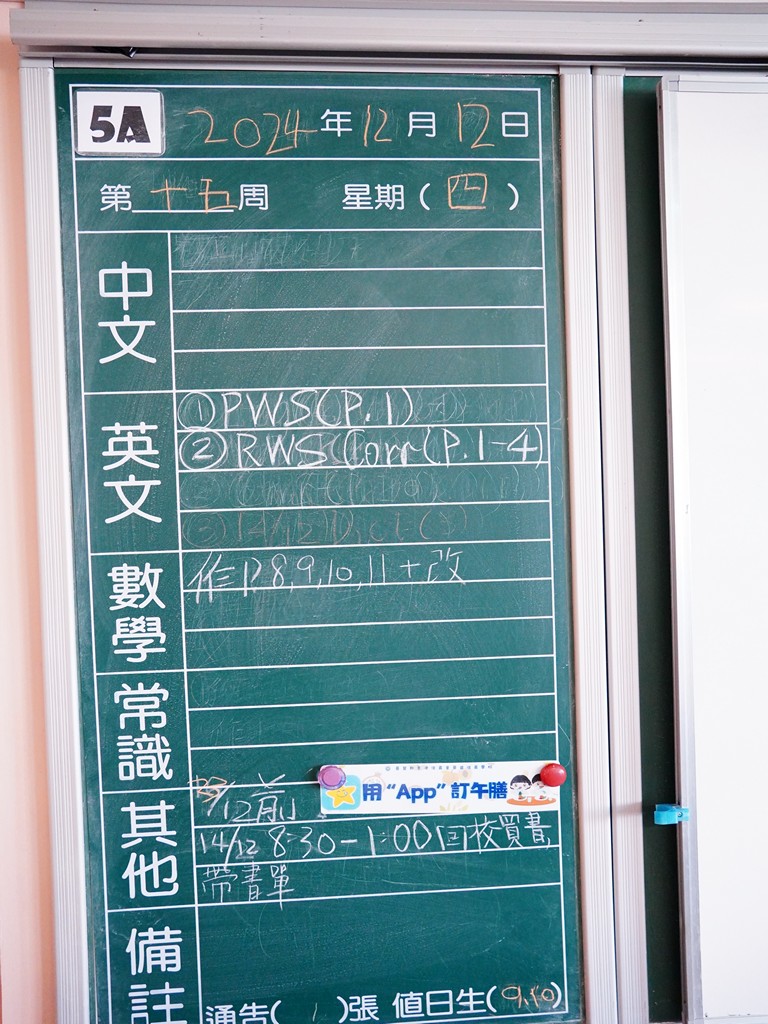 5A 2024年12月12日
第十五周 星期(四)
中文
英文
①PWS(P.1)
②RWS Corr(P.1-4)
③14/12 Dict(
數學
作P.8,9,10,11+改
常識
其他
/12前
用“App”訂午膳
14/12 8:30-1:00回校買書,
帶書單
備註
通告( 1 )張 值日生(9,10)